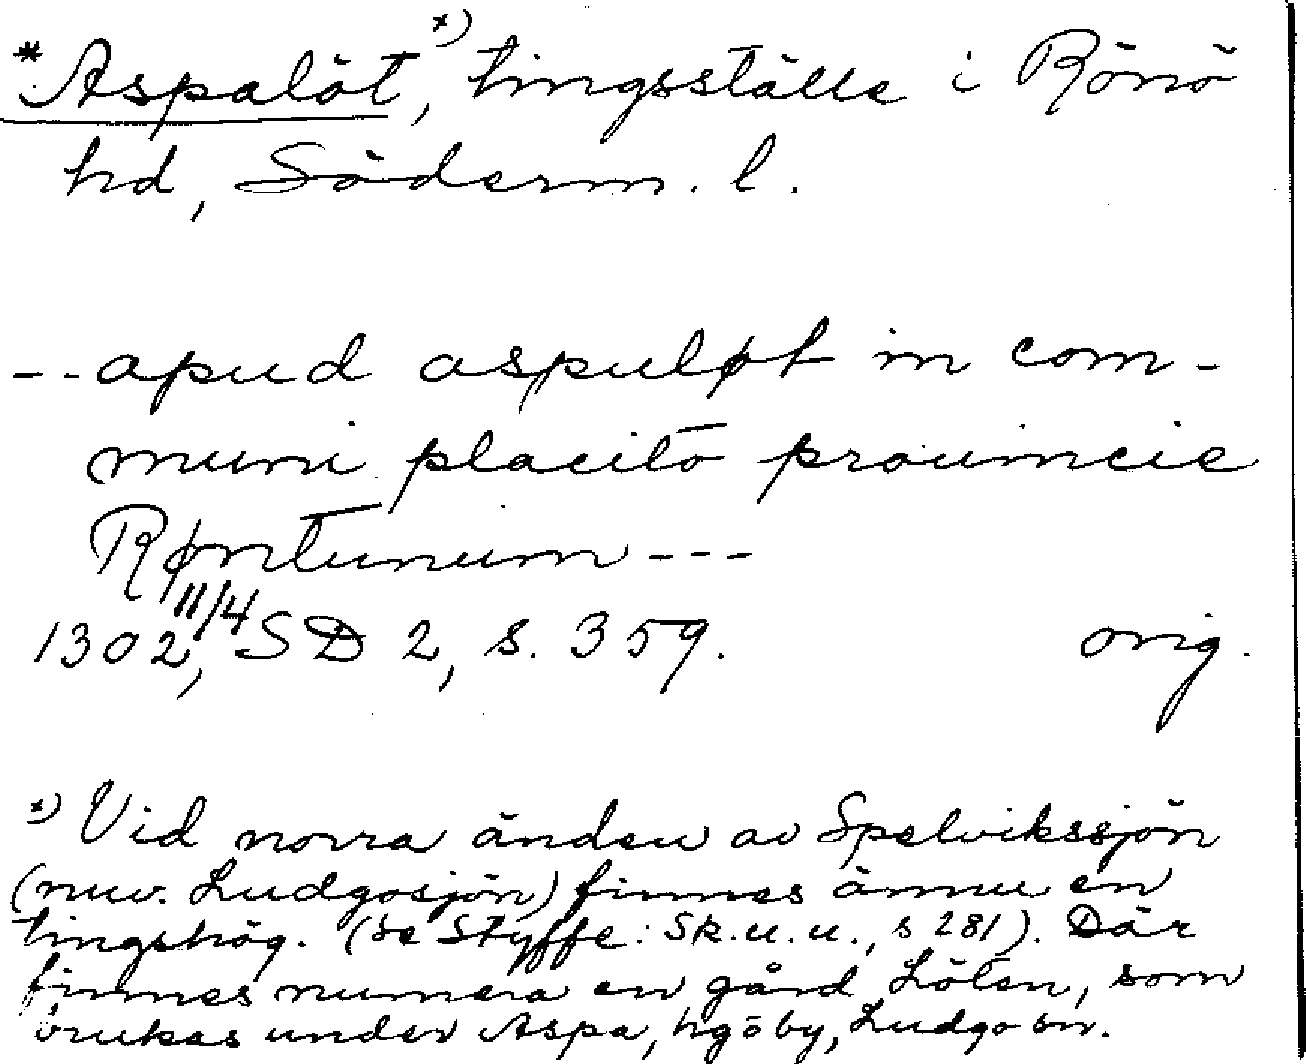 *Aspalöt,ˣ⁾ tingsställe i Rönö
hd, Söderm. l.
--apud aspuløt in com-
muni placito prouincie
Røntunum---
1302 11/4, SD 2, s. 359. orig.
ˣ⁾ Vid norra änden av Spelvikssjön
(nuv. Ludgosjön) finnes ännu en
tingshög. (se Styffe: Sk.u.u., s 281). Där
finnes numera en gård Löten, som
brukas under Aspa, hgöby, Ludgo sn.